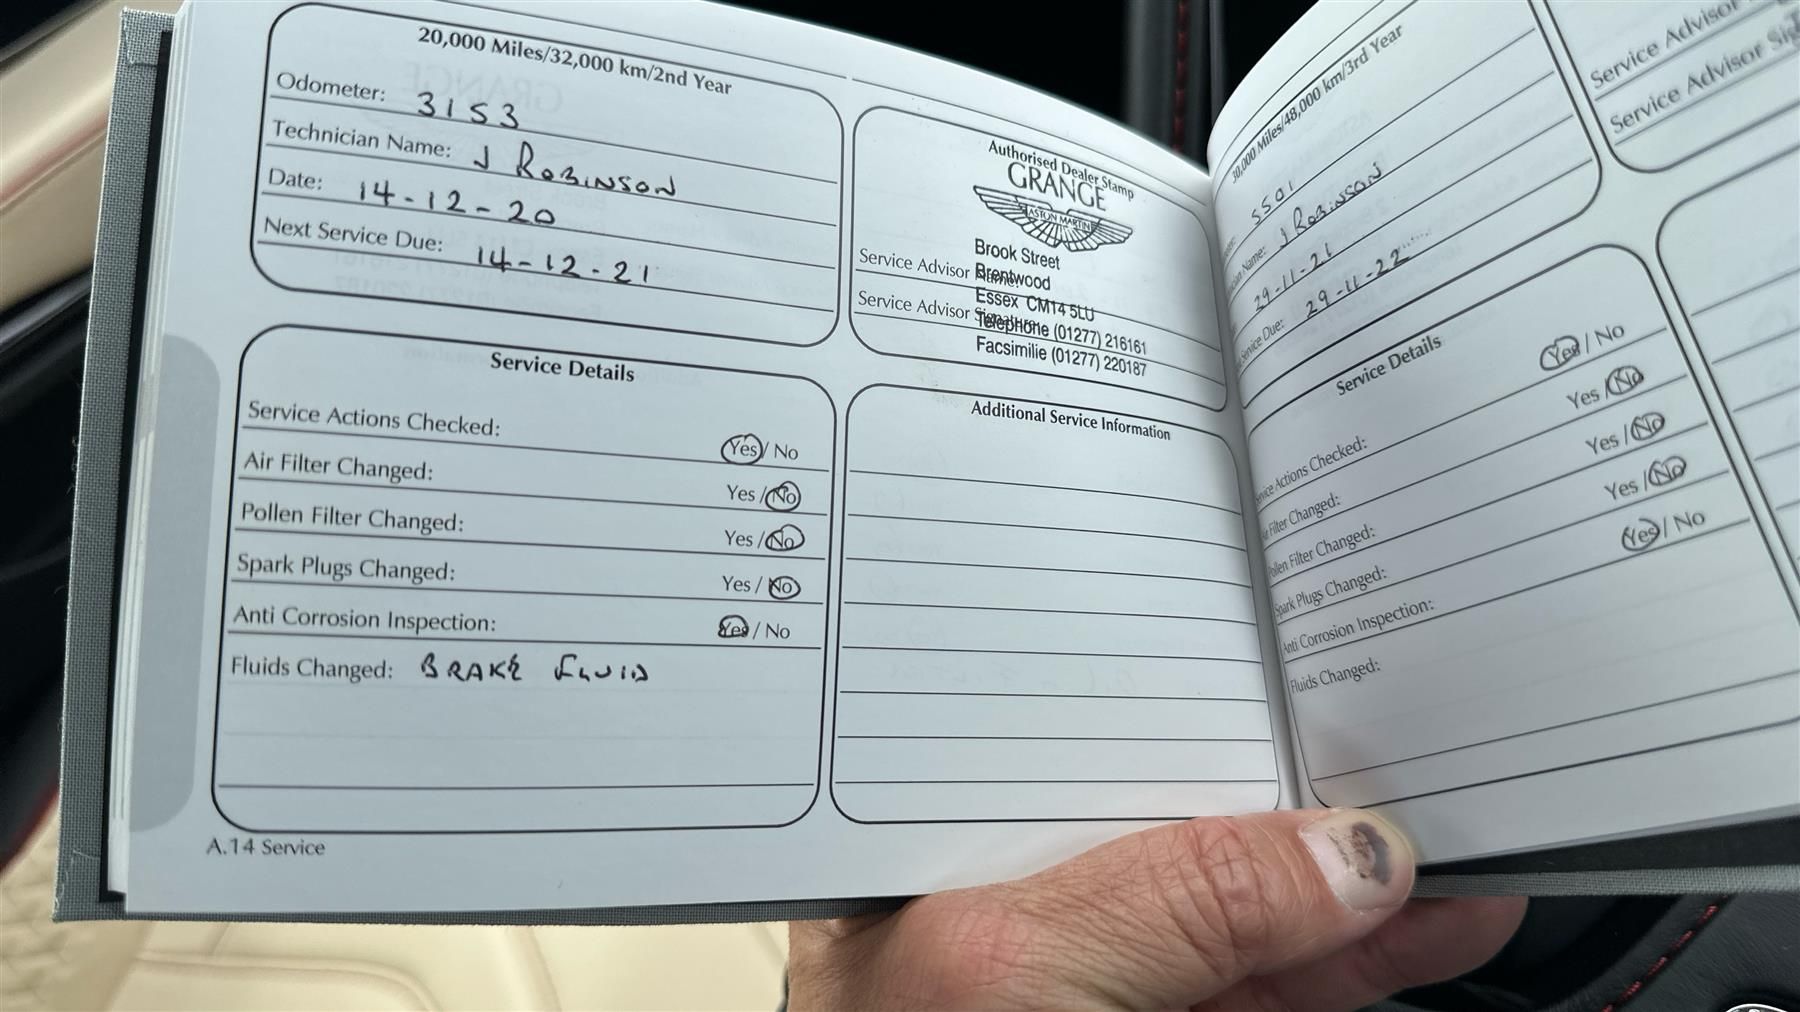 20,000 Miles/32,000 km/2nd Year
Odometer: 3153
Technician Name: J ROBINSON
Date: 14-12-20
Next Service Due: 14-12-21
Authorised Dealer Stamp
GRANGE
ASTON MARTIN
Brook Street
Service Advisor Name:
Brentwood
Essex CM14 5LU
Service Advisor Signature:
Telephone (01277) 216161
Facsimilie (01277) 220187
Service Details
Service Actions Checked: Yes / No
Air Filter Changed: Yes / No
Pollen Filter Changed: Yes / No
Spark Plugs Changed: Yes / No
Anti Corrosion Inspection: Yes / No
Fluids Changed: BRAKE FLUID
Additional Service Information
A.14 Service
30,000 Miles/48,000 km/3rd Year
5501
Name: J ROBINSON
29-11-21
Service Due: 29-11-22
Service Details
Service Actions Checked: Yes / No
Air Filter Changed: Yes / No
Pollen Filter Changed: Yes / No
Spark Plugs Changed: Yes / No
Anti Corrosion Inspection: Yes / No
Fluids Changed:
Service Advisor
Service Advisor Sig